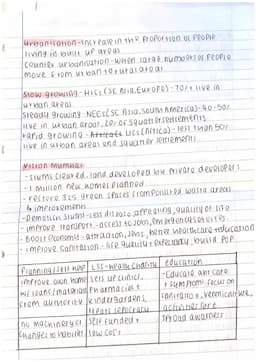 Urbanisation - increase in the proportion of people
living in built up areas
Counter urbanisation - when large numbers of people
move from urban to rural areas
Slow growing - HICs (SE Asia, Europe) - 70%+ live in
urban areas
Steady growing - NEEs (SE Asia, South America) - 40-50%
live in urban areas, 20% of squatter settlements
Rapid growing - LICs (Africa) - less than 50%
live in urban areas and squatter settlements
Vision Mumbai
- slums cleared, land developed low private developers
- 1 million new homes planned
- restore 325 green spaces from polluted waste areas
4 improvements
- Demolish slums - less disease, appealing, quality of life
- improve transport - access to jobs,
- boost economy - attraction, jobs, better healthcare + education
- improve sanitation - life quality + expectancy, build pop
Planning/self help
LSS - health charity
education
improve own home
sets up clinics,
- Educate abt care
w/ loans/materials
Pharmacies +
+ symptoms. Focus on
from authority
kindergardens,
sanitation, vermiculture,
treats leprosy
activities for +
no machinery
Self funded +
spread awareness
changes to habitat